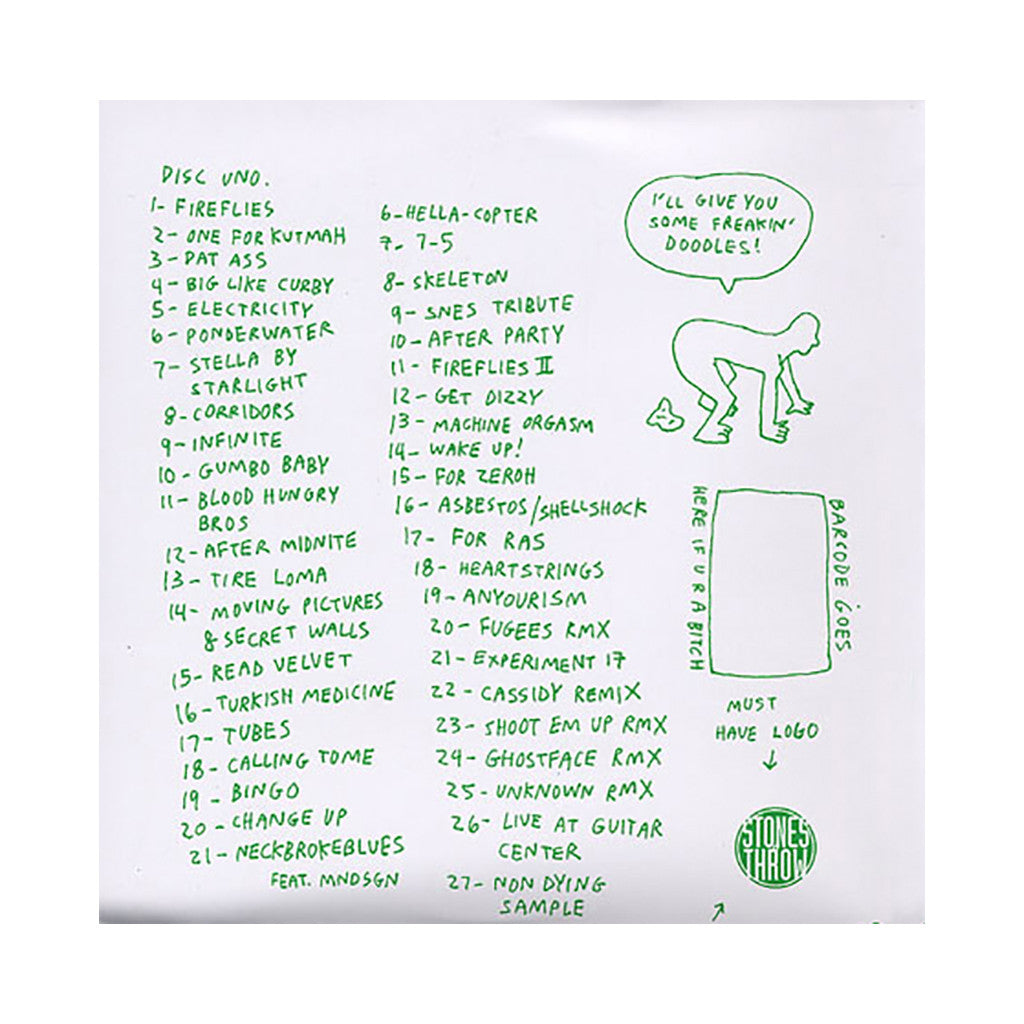 DISC UNO.
1- FIREFLIES
2- ONE FOR KUTMAH
3- PAT ASS
4- BIG LIKE CURBY
5- ELECTRICITY
6- PONDERWATER
7- STELLA BY
STARLIGHT
8- CORRIDORS
9- INFINITE
10- GUMBO BABY
11- BLOOD HUNGRY
BROS
12- AFTER MIDNITE
13- TIRE LOMA
14- MOVING PICTURES
& SECRET WALLS
15- READ VELVET
16- TURKISH MEDICINE
17- TUBES
18- CALLING TOME
19- BINGO
20- CHANGE UP
21- NECKBROKEBLUES
FEAT. MNDSGN
6- HELLA-COPTER
7- 7-5
8- SKELETON
9- SNES TRIBUTE
10- AFTER PARTY
11- FIREFLIES II
12- GET DIZZY
13- MACHINE ORGASM
14- WAKE UP!
15- FOR ZEROH
16- ASBESTOS/SHELLSHOCK
17- FOR RAS
18- HEARTSTRINGS
19- ANYOURISM
20- FUGEES RMX
21- EXPERIMENT 17
22- CASSIDY REMIX
23- SHOOT EM UP RMX
24- GHOSTFACE RMX
25- UNKNOWN RMX
26- LIVE AT GUITAR
CENTER
27- NON DYING
SAMPLE
I'LL GIVE YOU
SOME FREAKIN'
DOODLES!
BARCODE GOES
HERE IF U R A BITCH
MUST
HAVE LOGO
STONES
THROW